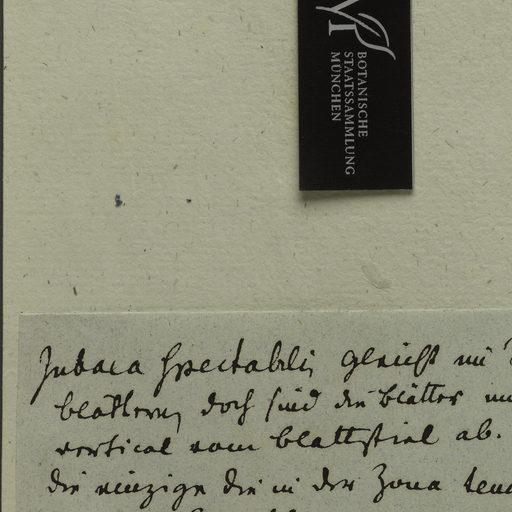 BOTANISCHE
STAATSSAMMLUNG
MÜNCHEN
Jubaea spectabilis gleicht
blättern, doch sind die blätter
vertical vom blattstiel ab.
die einzige die in der Zona